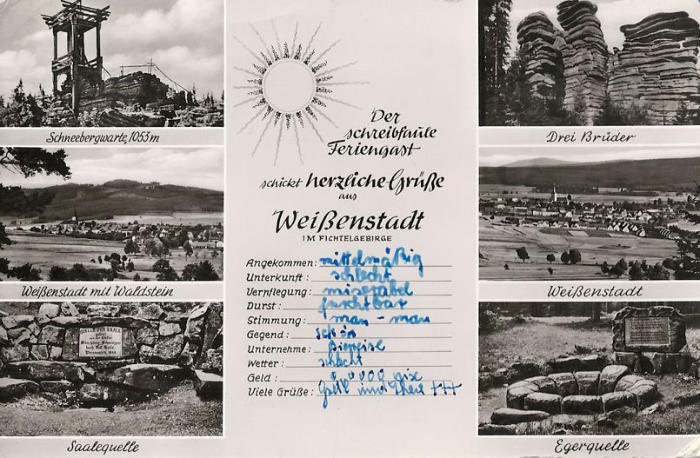 Schneebergwarte, 1053 m
Weißenstadt mit Waldstein
Saalequelle
Der
schreibfaule
Feriengast
schickt herzliche Grüße
aus
Weißenstadt
IM FICHTELGEBIRGE
Angekommen: mittelmäßig
Unterkunft: schlecht
Verpflegung: miserabel
Durst: furchtbar
Stimmung: man-man
Gegend: schön
Unternehme:
Wetter: schlecht
Geld
Viele Grüße:
Drei Brüder
Weißenstadt
Egerquelle